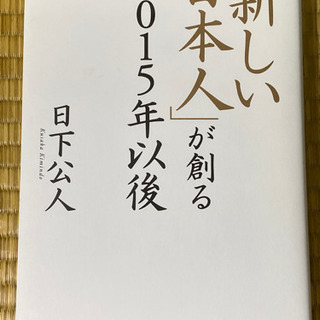 新しい
日本人」が創る
2015年以後
日下公人
Kusaka Kimindo